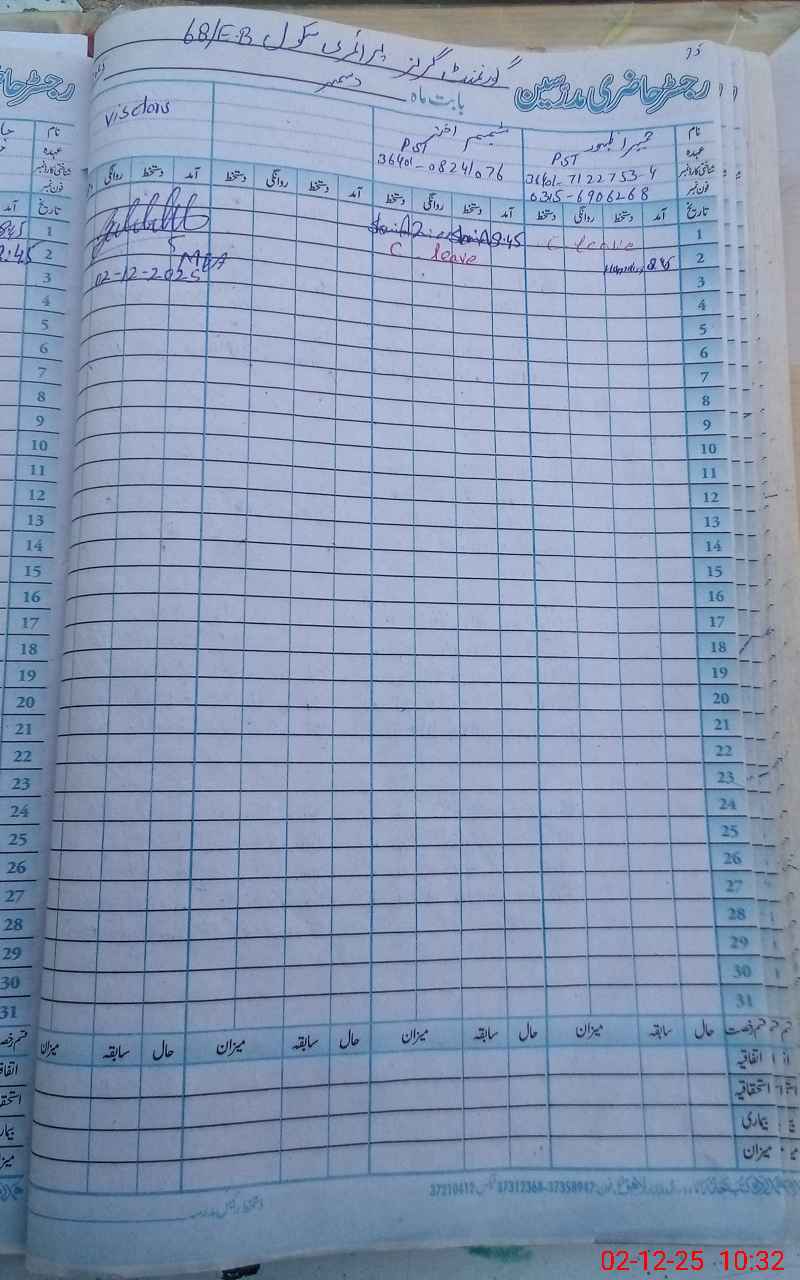 گورنمنٹ گرلز پرائمری سکول 68/E.B
رجسٹر حاضری مدرسین
بابت ماہ دسمبر
نام حمیرا ظہور شمیم اختر Visdors
عہدہ PST PST
شناختی کارڈ نمبر 36401-7122753-4 36401-08241076
فون نمبر 0345-6906268
تاریخ آمد دستخط روانگی دستخط آمد دستخط روانگی دستخط آمد دستخط روانگی دستخط آمد دستخط روانگی
1 C leave
2 8:45 C leave
3 MEA 02-12-2025
4
5
6
7
8
9
10
11
12
13
14
15
16
17
18
19
20
21
22
23
24
25
26
27
28
29
30
31
قسم رخصت حال سابقہ میزان حال سابقہ میزان حال سابقہ میزان حال سابقہ میزان
اتفاقیہ
استحقاقیہ
بیماری
میزان
37210412 37312368-37358947
02-12-25 10:32